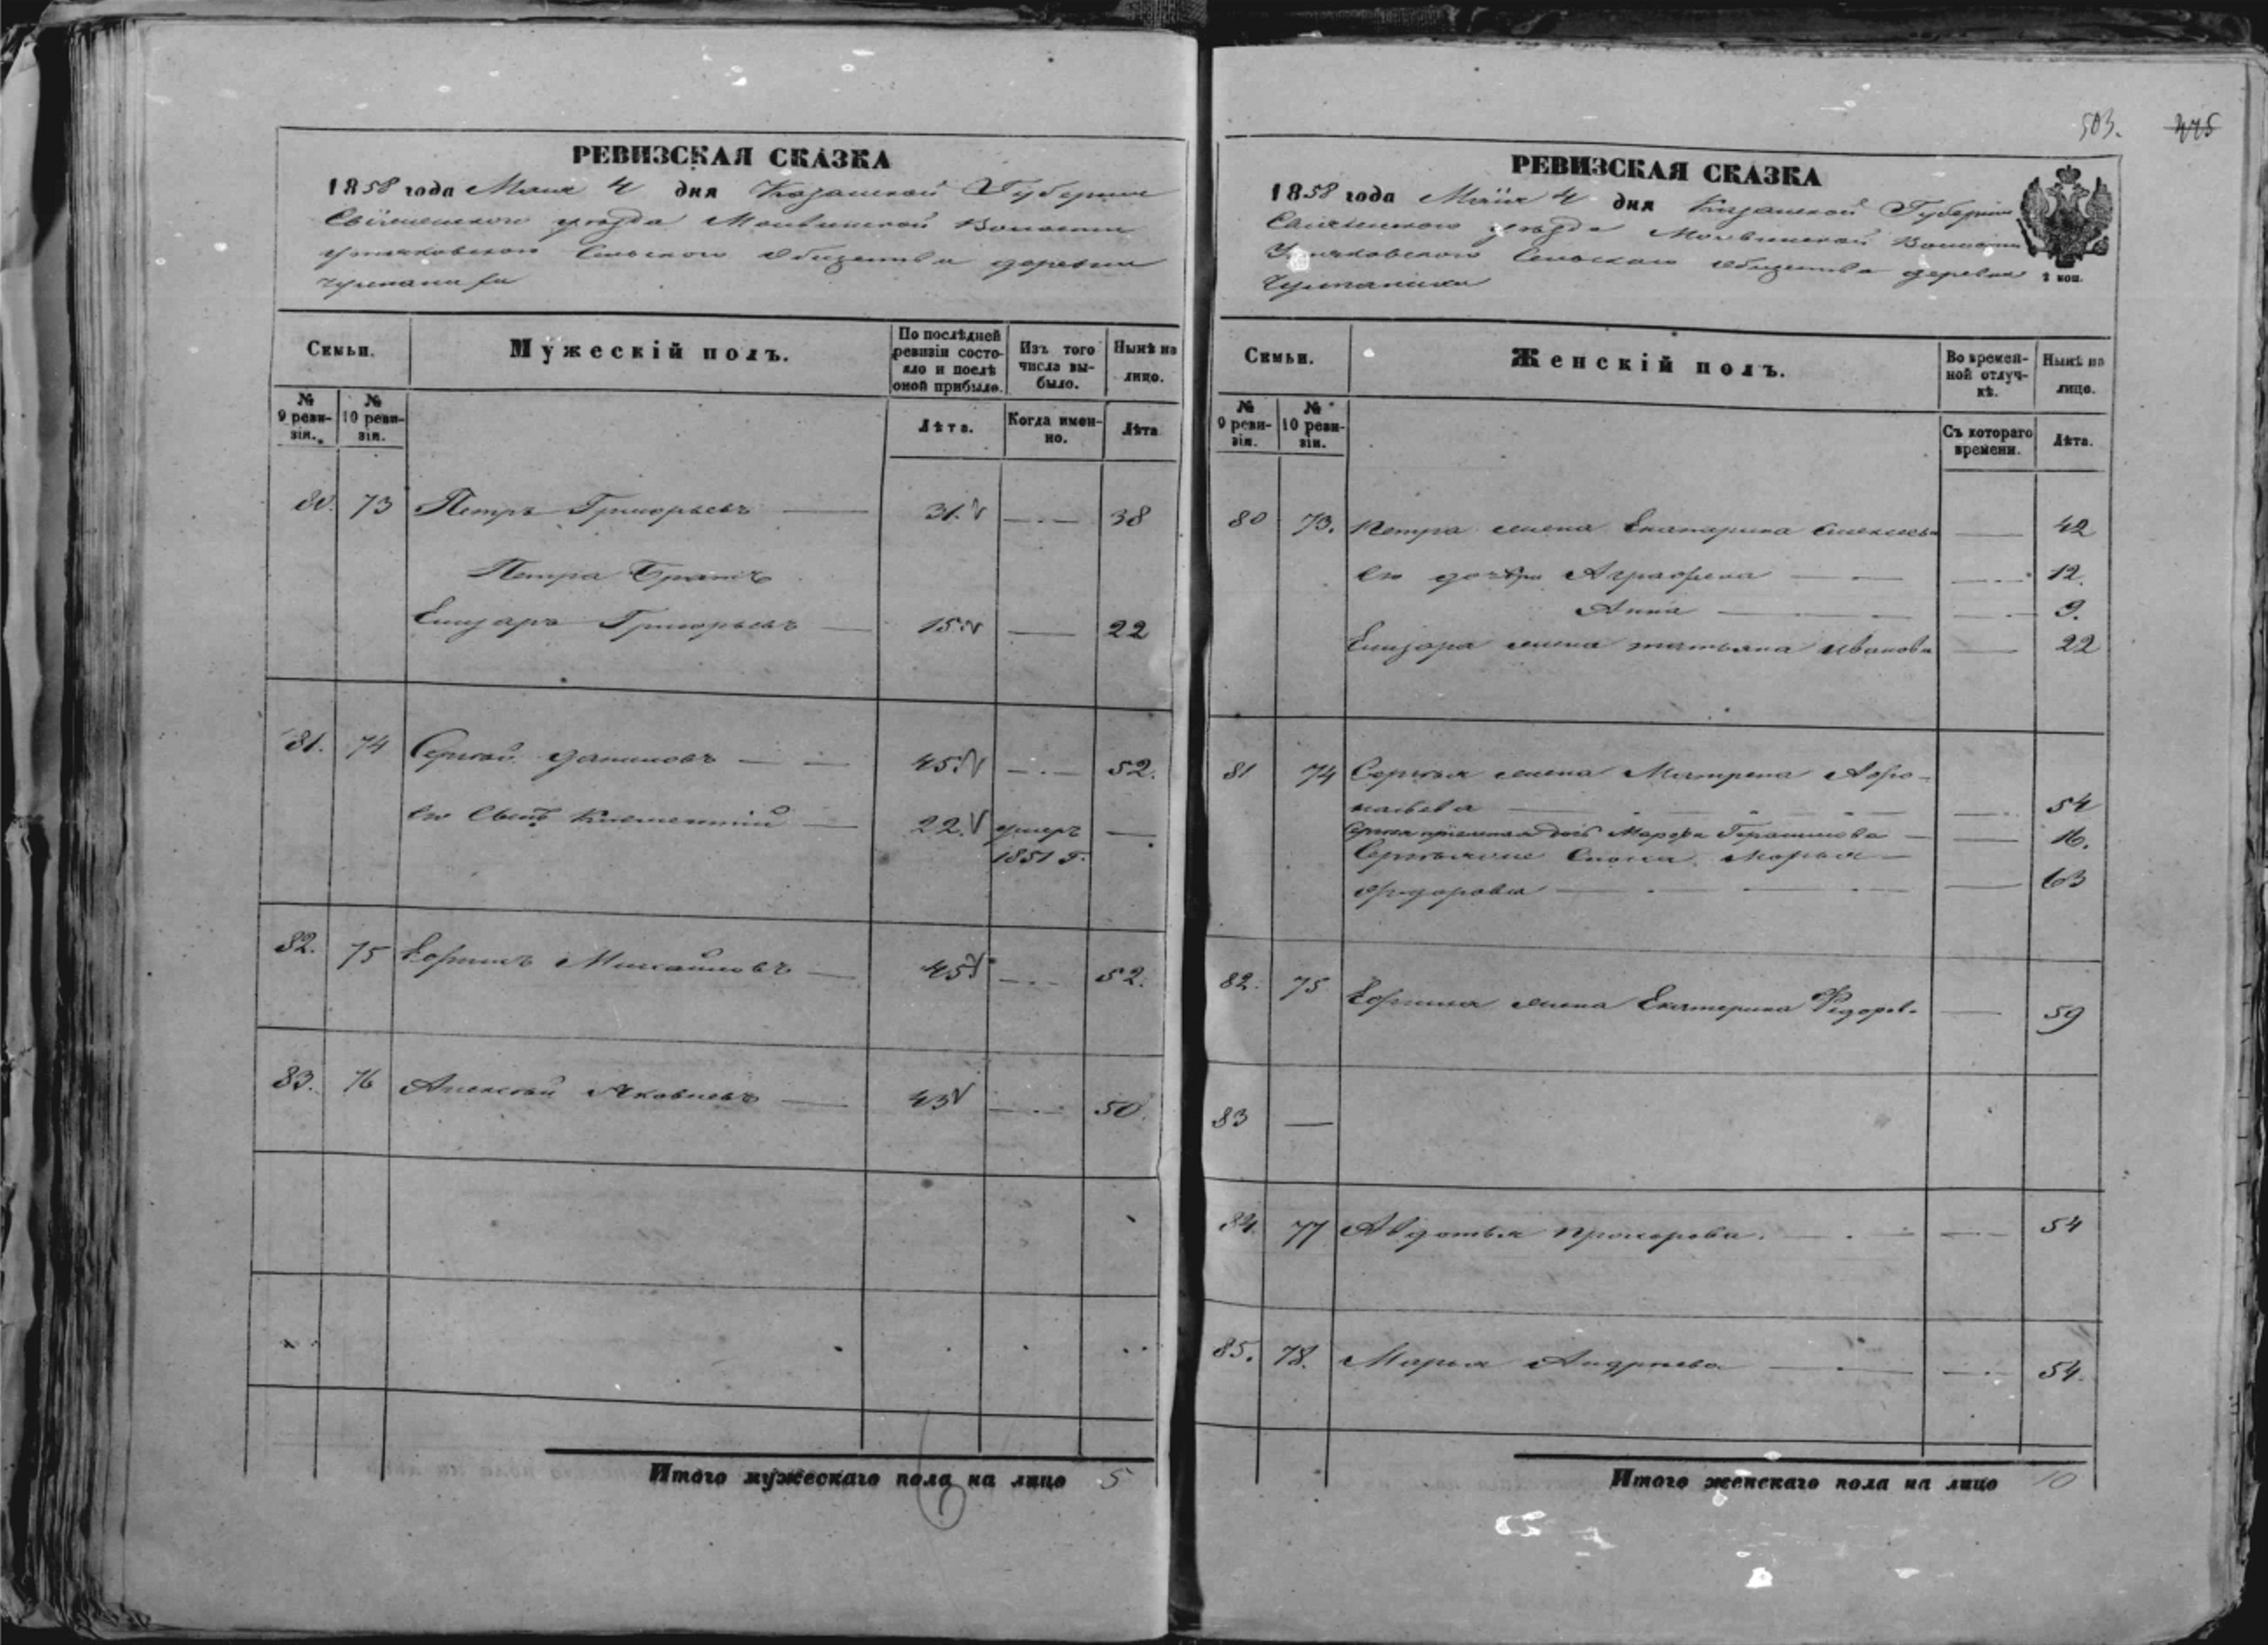 РЕВИЗСКАЯ СКАЗКА
1858 года Мая 4 дня Казанской Губернии
уезда Волости
Сельского Общества деревни
По послѣдней ревизіи состояло и послѣ оной прибыло.
Изъ того числа выбыло.
Нынѣ на лицо.
Семьи. Мужескій полъ.
№ 9 ревизіи. № 10 ревизіи. Лѣта. Когда именно. Лѣта
80. 73 Петръ Григорьевъ 31. 38
Петра Братъ
Елизаръ Григорьевъ 15. 22
81. 74 Сергѣй Даниловъ 45. 52.
его Сынъ Климентій 22. умеръ
1851 г.
82. 75 Ефимъ Михайловъ 45 52.
83. 76 Алексѣй Яковлевъ 43 50.
Итого мужескаго пола на лицо 5
503. 475
РЕВИЗСКАЯ СКАЗКА
1858 года Маія 4 дня Казанской Губерніи
уѣзда Волости
Сельскаго Общества деревни
2 коп.
Семьи. Женскій полъ. Во временной отлучкѣ. Нынѣ на лицо.
№ 9 ревизіи. № 10 ревизіи. Съ котораго времени. Лѣта.
80 73. Петра жена Екатерина Алексѣева 42
его дочери Аграфена 12.
Анна 9.
Елизара жена татьяна иванова 22
81 74 Сергѣя жена Матрена Афо-
насьева 54
дочь Марфа Герасимова 16.
Марья
Федорова 63
82. 75 Ефима жена Екатерина Федоров. 59
83 —
84. 77 Авдотья Прохорова. 54
85. 78. Марья Андреева 54.
Итого женскаго пола на лицо 10